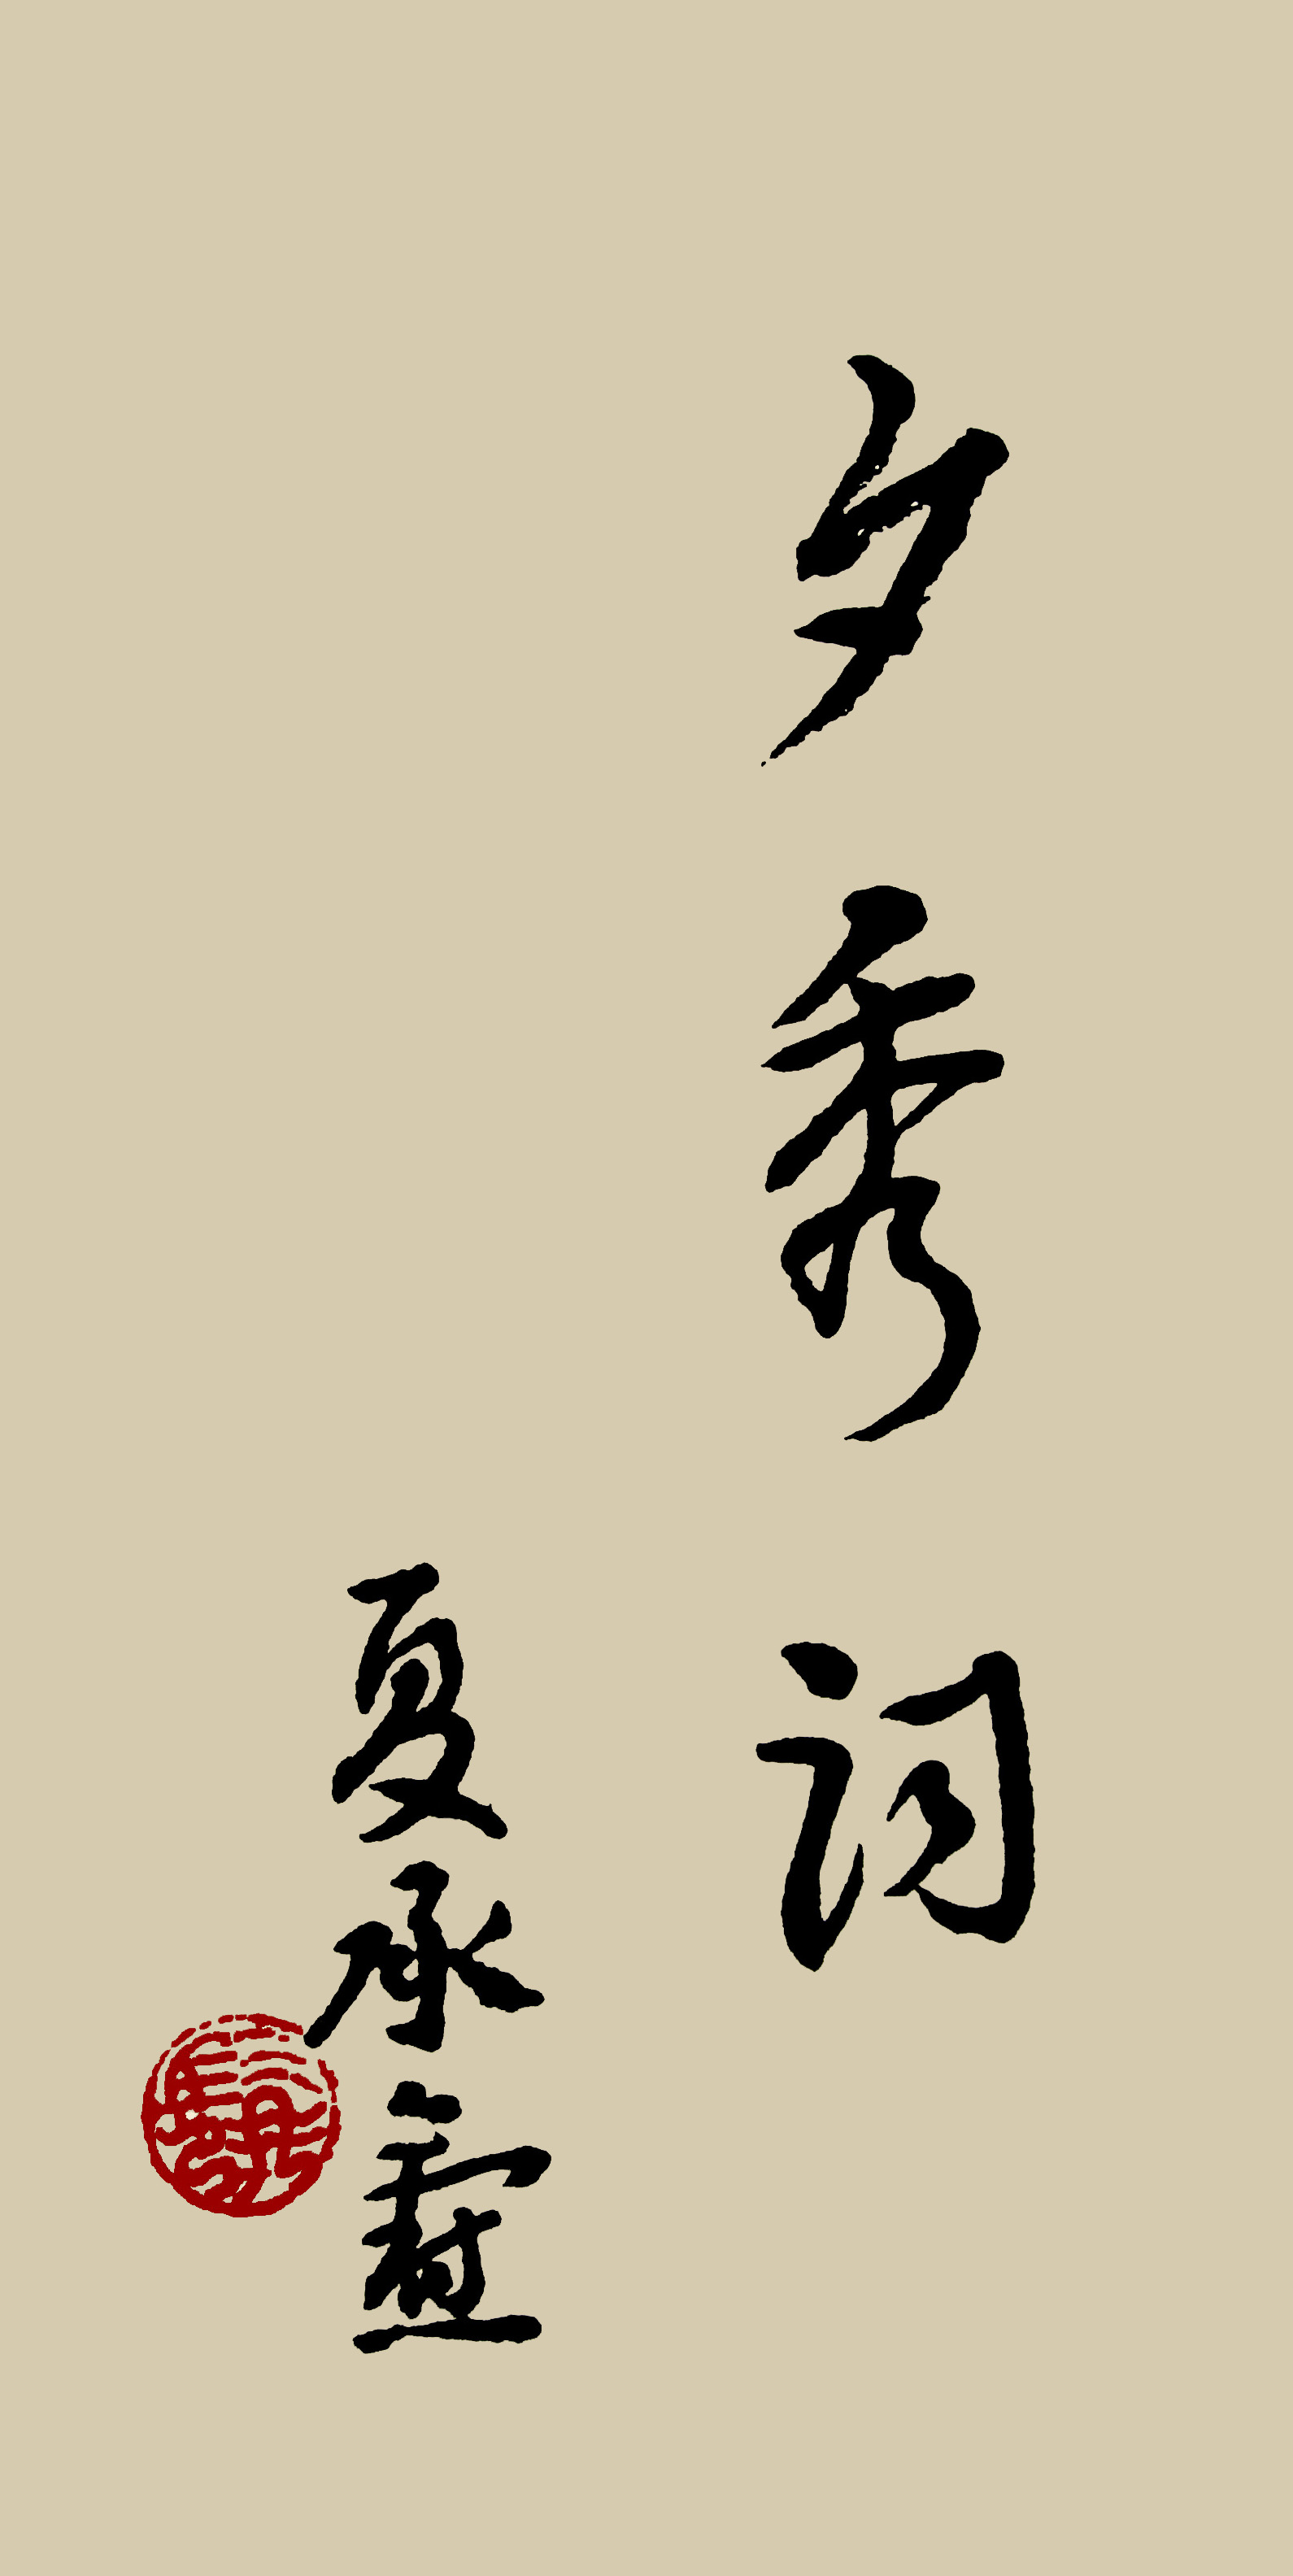 夕秀词
夏承焘